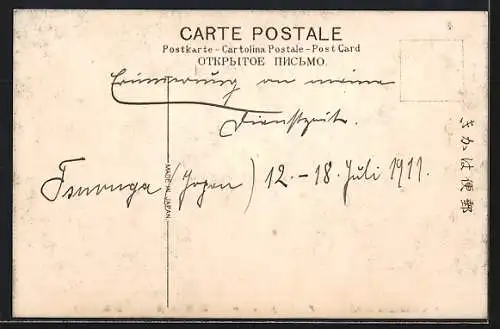 CARTE POSTALE
Postkarte - Cartolina Postale - Post Card
ОТКРЫТОЕ ПИСЬМО.
Erinnerung an meine
Dienstzeit.
Tsuruga (Japan) 12. - 18. Juli 1911.
MADE IN JAPAN
郵便はかき